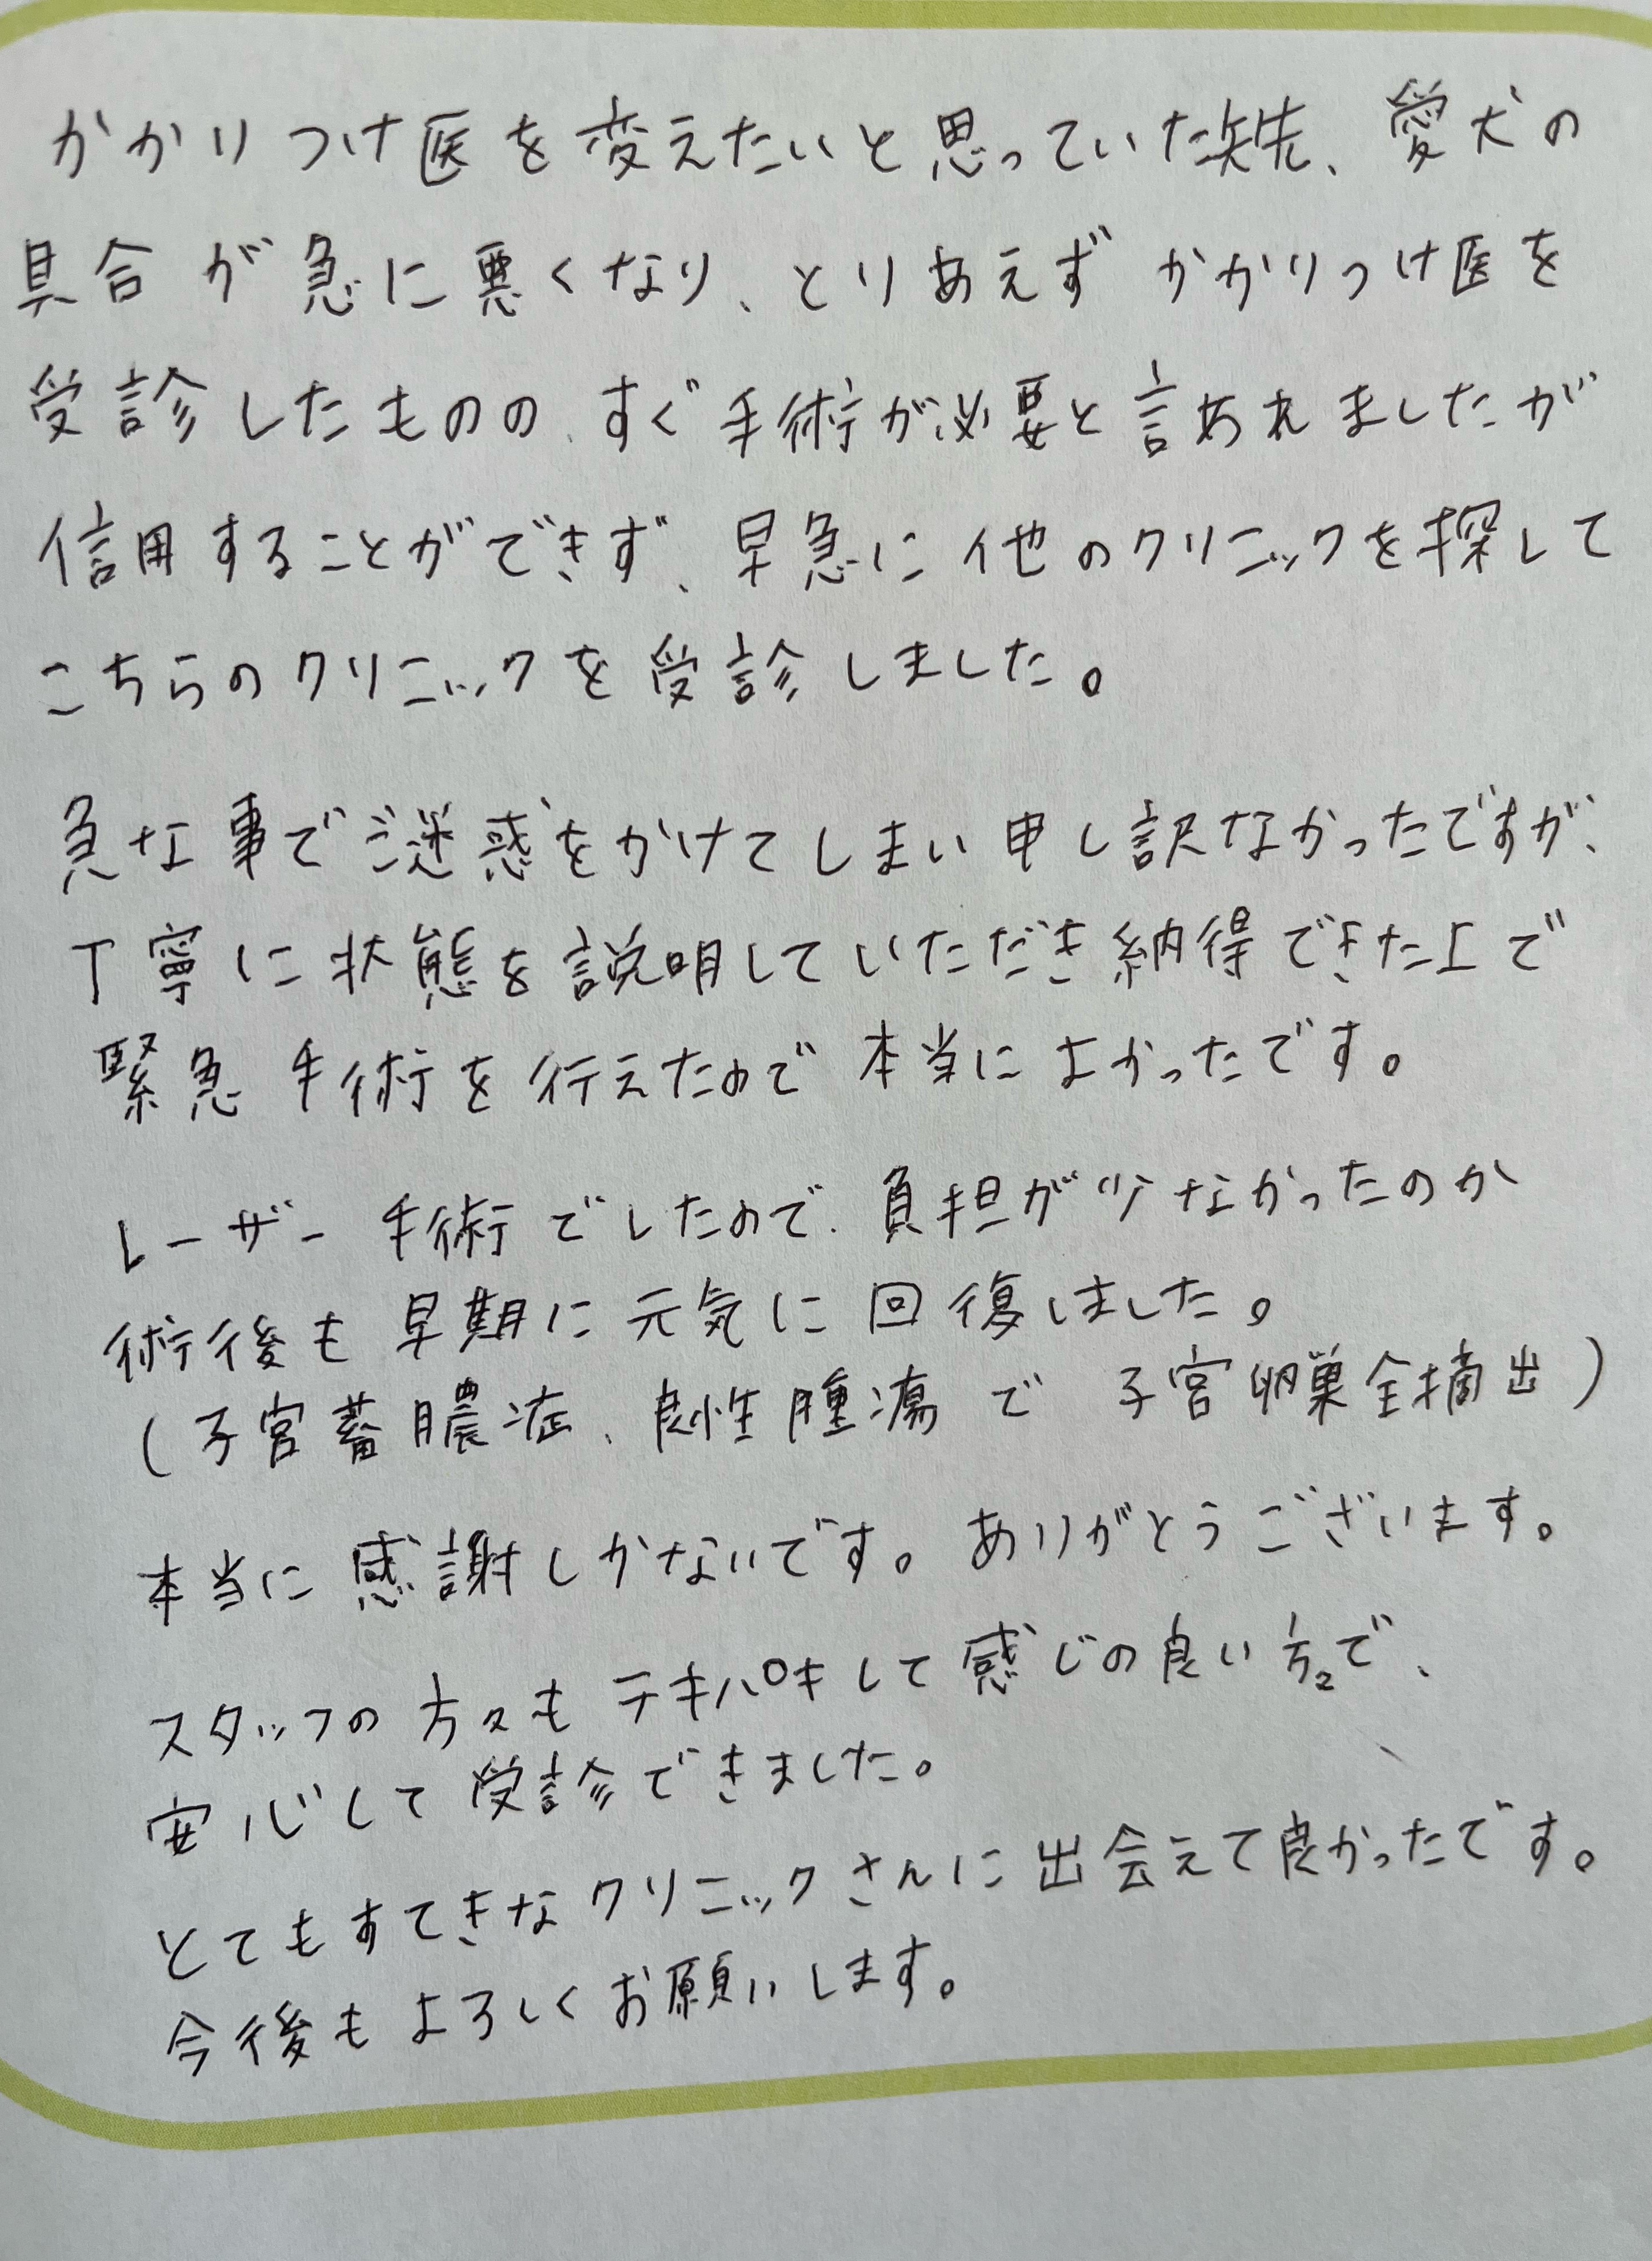 かかりつけ医を変えたいと思っていた矢先、愛犬の
具合が急に悪くなり、とりあえずかかりつけ医を
受診したものの、すぐ手術が必要と言われましたが
信用することができず、早急に他のクリニックを探して
こちらのクリニックを受診しました。
急な事でご迷惑をかけてしまい申し訳なかったですが、
丁寧に状態を説明していただき納得できた上で
緊急手術を行えたので本当によかったです。
レーザー手術でしたので、負担が少なかったのか
術後も早期に元気に回復しました。
(子宮蓄膿症、良性腫瘍で子宮卵巣全摘出)
本当に感謝しかないです。ありがとうございます。
スタッフの方々もテキパキして感じの良い方々で、
安心して受診できました。
とてもすてきなクリニックさんに出会えて良かったです。
今後もよろしくお願いします。